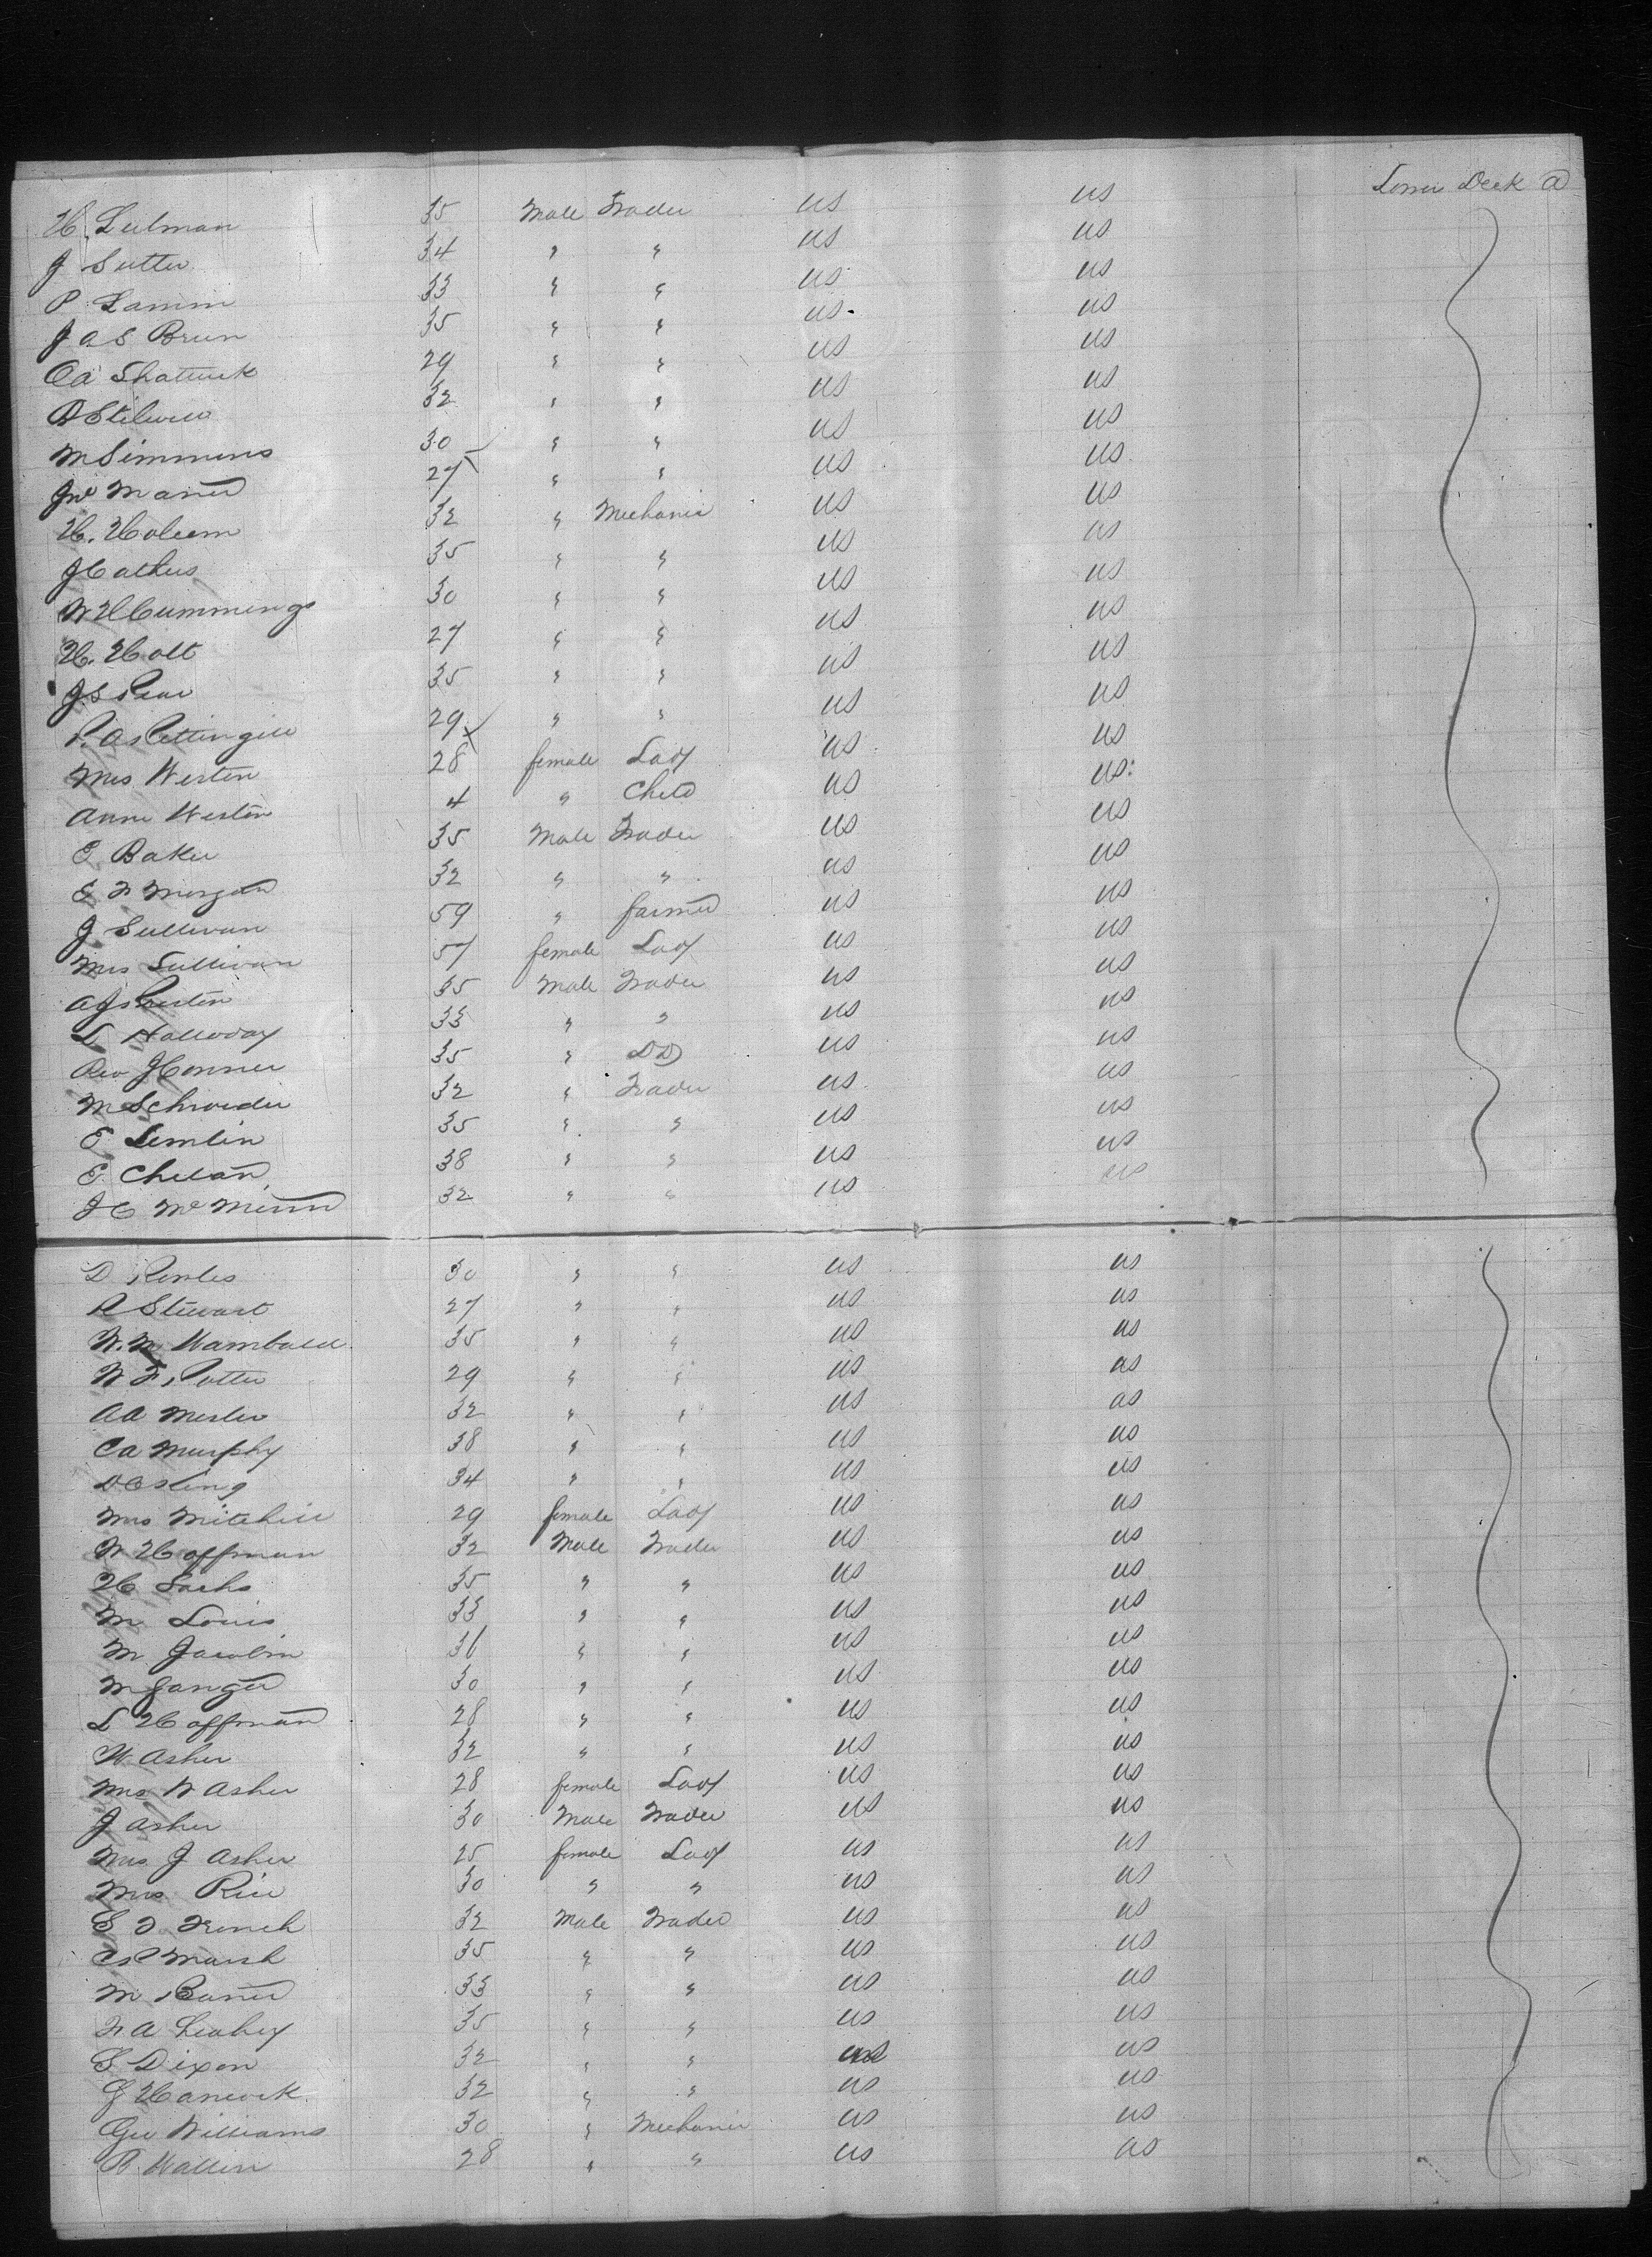 Lower Deck a
H. Lulman 35 Male Trader US US
J Sutter 34 " " US US
P. Lamm 33 " " US US
Jas Brun 35 " " US US
Ca Shattuck 29 " " US US
R Stilwell 32 " " US US
M Simmons 30 " " US US
Maner 27 " " US US
H. Holcom 32 " Mechanic US US
J Cathers 35 " " US US
W H Cummings 30 " " US US
H. Holt 27 " " US US
J.S. 35 " " US US
P. A Pettingill 29 " " US US
Mrs Westen 28 female Lady US US
Anne Westen 4 " Child US US
E. Baker 35 Male Trader US US
E F Morgan 32 " " US US
J Sullivan 59 " farmer US US
Mrs Sullivan 57 female Lady US US
A J Presten 35 Male Trader US US
L Holloway 33 " " US US
Rev J Conner 35 " DD US US
M Schroeder 32 " Trader US US
E Lemlin 35 " " US US
E Chelan 38 " " US US
J C McMinn 32 " " US US
D Rowles 30 " " US US
R Stewart 27 " " US US
W. M Wambold 35 " " US US
W F Potter 29 " " US US
A A Mesler 32 " " US US
Ca Murphy 38 " " US US
34 " " US US
Mrs Mitchill 29 female Lady US US
W Hoffman 32 Male Trader US US
H Sachs 35 " " US US
M Louis 33 " " US US
M Jacobin 36 " " US US
M Sanger 30 " " US US
L Hoffman 28 " " US US
W Asher 32 " " US US
Mrs W Asher 28 female Lady US US
J Asher 30 Male Trader US US
Mrs J Asher 25 female Lady US US
Mrs Rice 30 " " US US
S F French 32 Male Trader US US
Marsh 35 " " US US
M Baner 33 " " US US
F A Leahey 35 " " US US
S Dixon 32 " " US US
G Hancock 32 " " US US
Geo Williams 30 " Mechanic US US
R Wallin 28 " " US US